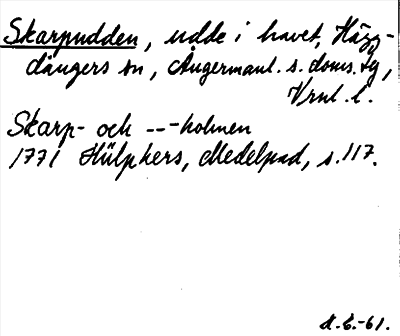 Skarpudden, udde i havet, Hägg-
dångers sn, Ångermanl. s. doms. tg,
Vrnl. l.
Skarp- och ---holmen
1771 Hülphers, Medelpad, s. 117.
-61.